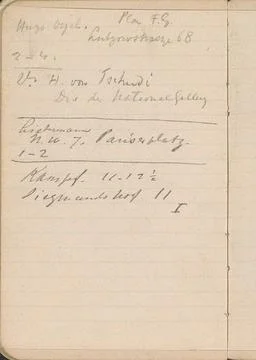 Hugo Vogel. Plan F.G.
Lutzowstrasse 68
2-4.
V. H. von Tschudi
Dir der National Gallery
Liebermann
N.W. 7. Pariserplatz.
1-2
Kampf. 11-12 ½
Siegmundshof 11
I